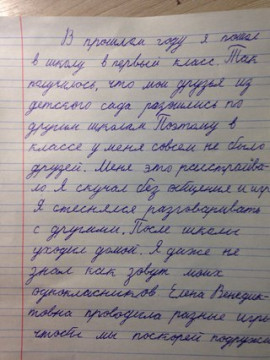 В прошлом году я пошел
в школу в первый класс. Так
получилось, что мои друзья из
детского сада разошлись по
другим школам Поэтому в
классе у меня совсем не было
друзей. Меня это расстраива-
ло. Я скучал без общения и игр
Я стеснялся разговаривать
с другими. После школы
уходил домой. Я даже не
знал как зовут моих
однокласников Елена Венедик-
товна проводила разные игры
чтобы мы поскорей подружи